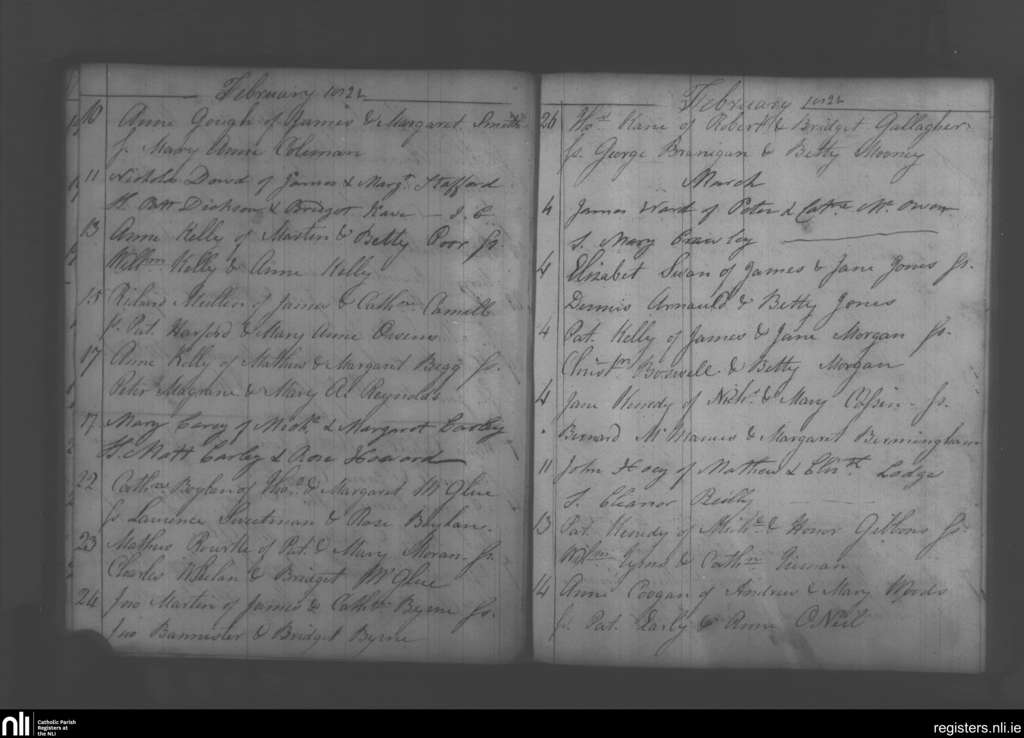 February 1822
10 Anne Gough of James & Margaret Smith
Sp. Mary Anne Coleman
11 Nicholas Dowd of James & Margt. Stafford
Sp. Patt Dickson & Bridget Kave — J. C.
13 Anne Kelly of Martin & Betty Poor Sp.
Willm Kelly & Anne Kelly
15 Richard Mullen of James & Cathne
Sp. Pat. Harford & Mary Anne Owens
17 Anne Kelly of Mathew & Margaret Begg Sp.
Peter Magrane & Mary A. Reynolds
17 Mary Carey of Michl. & Margaret Carley
S. Matt Carley & Rose Howard
22 Cathne Boylan of Thos. & Margaret McGlue
Sp. Laurence Sweetman & Rose Boylan
23 Mathew Rourke of Pat. & Mary Moran Sp.
Charles Whelan & Bridget McGlue
24 Jno Martin of James & Cathne Byrne Sp.
Jno Bannister & Bridget Byrne
February 1822
26 Thos. Kane of Robert & Bridget Gallagher
Sp. George Branigan & Betty Mooney
March
4 James Ward of Peter & Cathe. Mc Owen
S. Mary Crawley
4 Elizabet Swan of James & Jane Jones Sp.
Dennis Arnauld & Betty Jones
4 Pat. Kelly of James & Jane Morgan Sp.
Christr. & Betty Morgan
4 Jane Hendy of Nichs. & Mary Sp.
Bernard McManus & Margaret Bermingham
11 John Hoey of Mathew & Elizth. Lodge
S. Eleanor Reilly
13 Pat. Hendy of Michl. & Honor Gibbons Sp.
Willm Lyons & Cathne Kiernan
14 Anne Coogan of Andrew & Mary Words
Sp. Pat. Early & Anne O'Neil
nli
Catholic Parish
Registers at
the NLI
registers.nli.ie